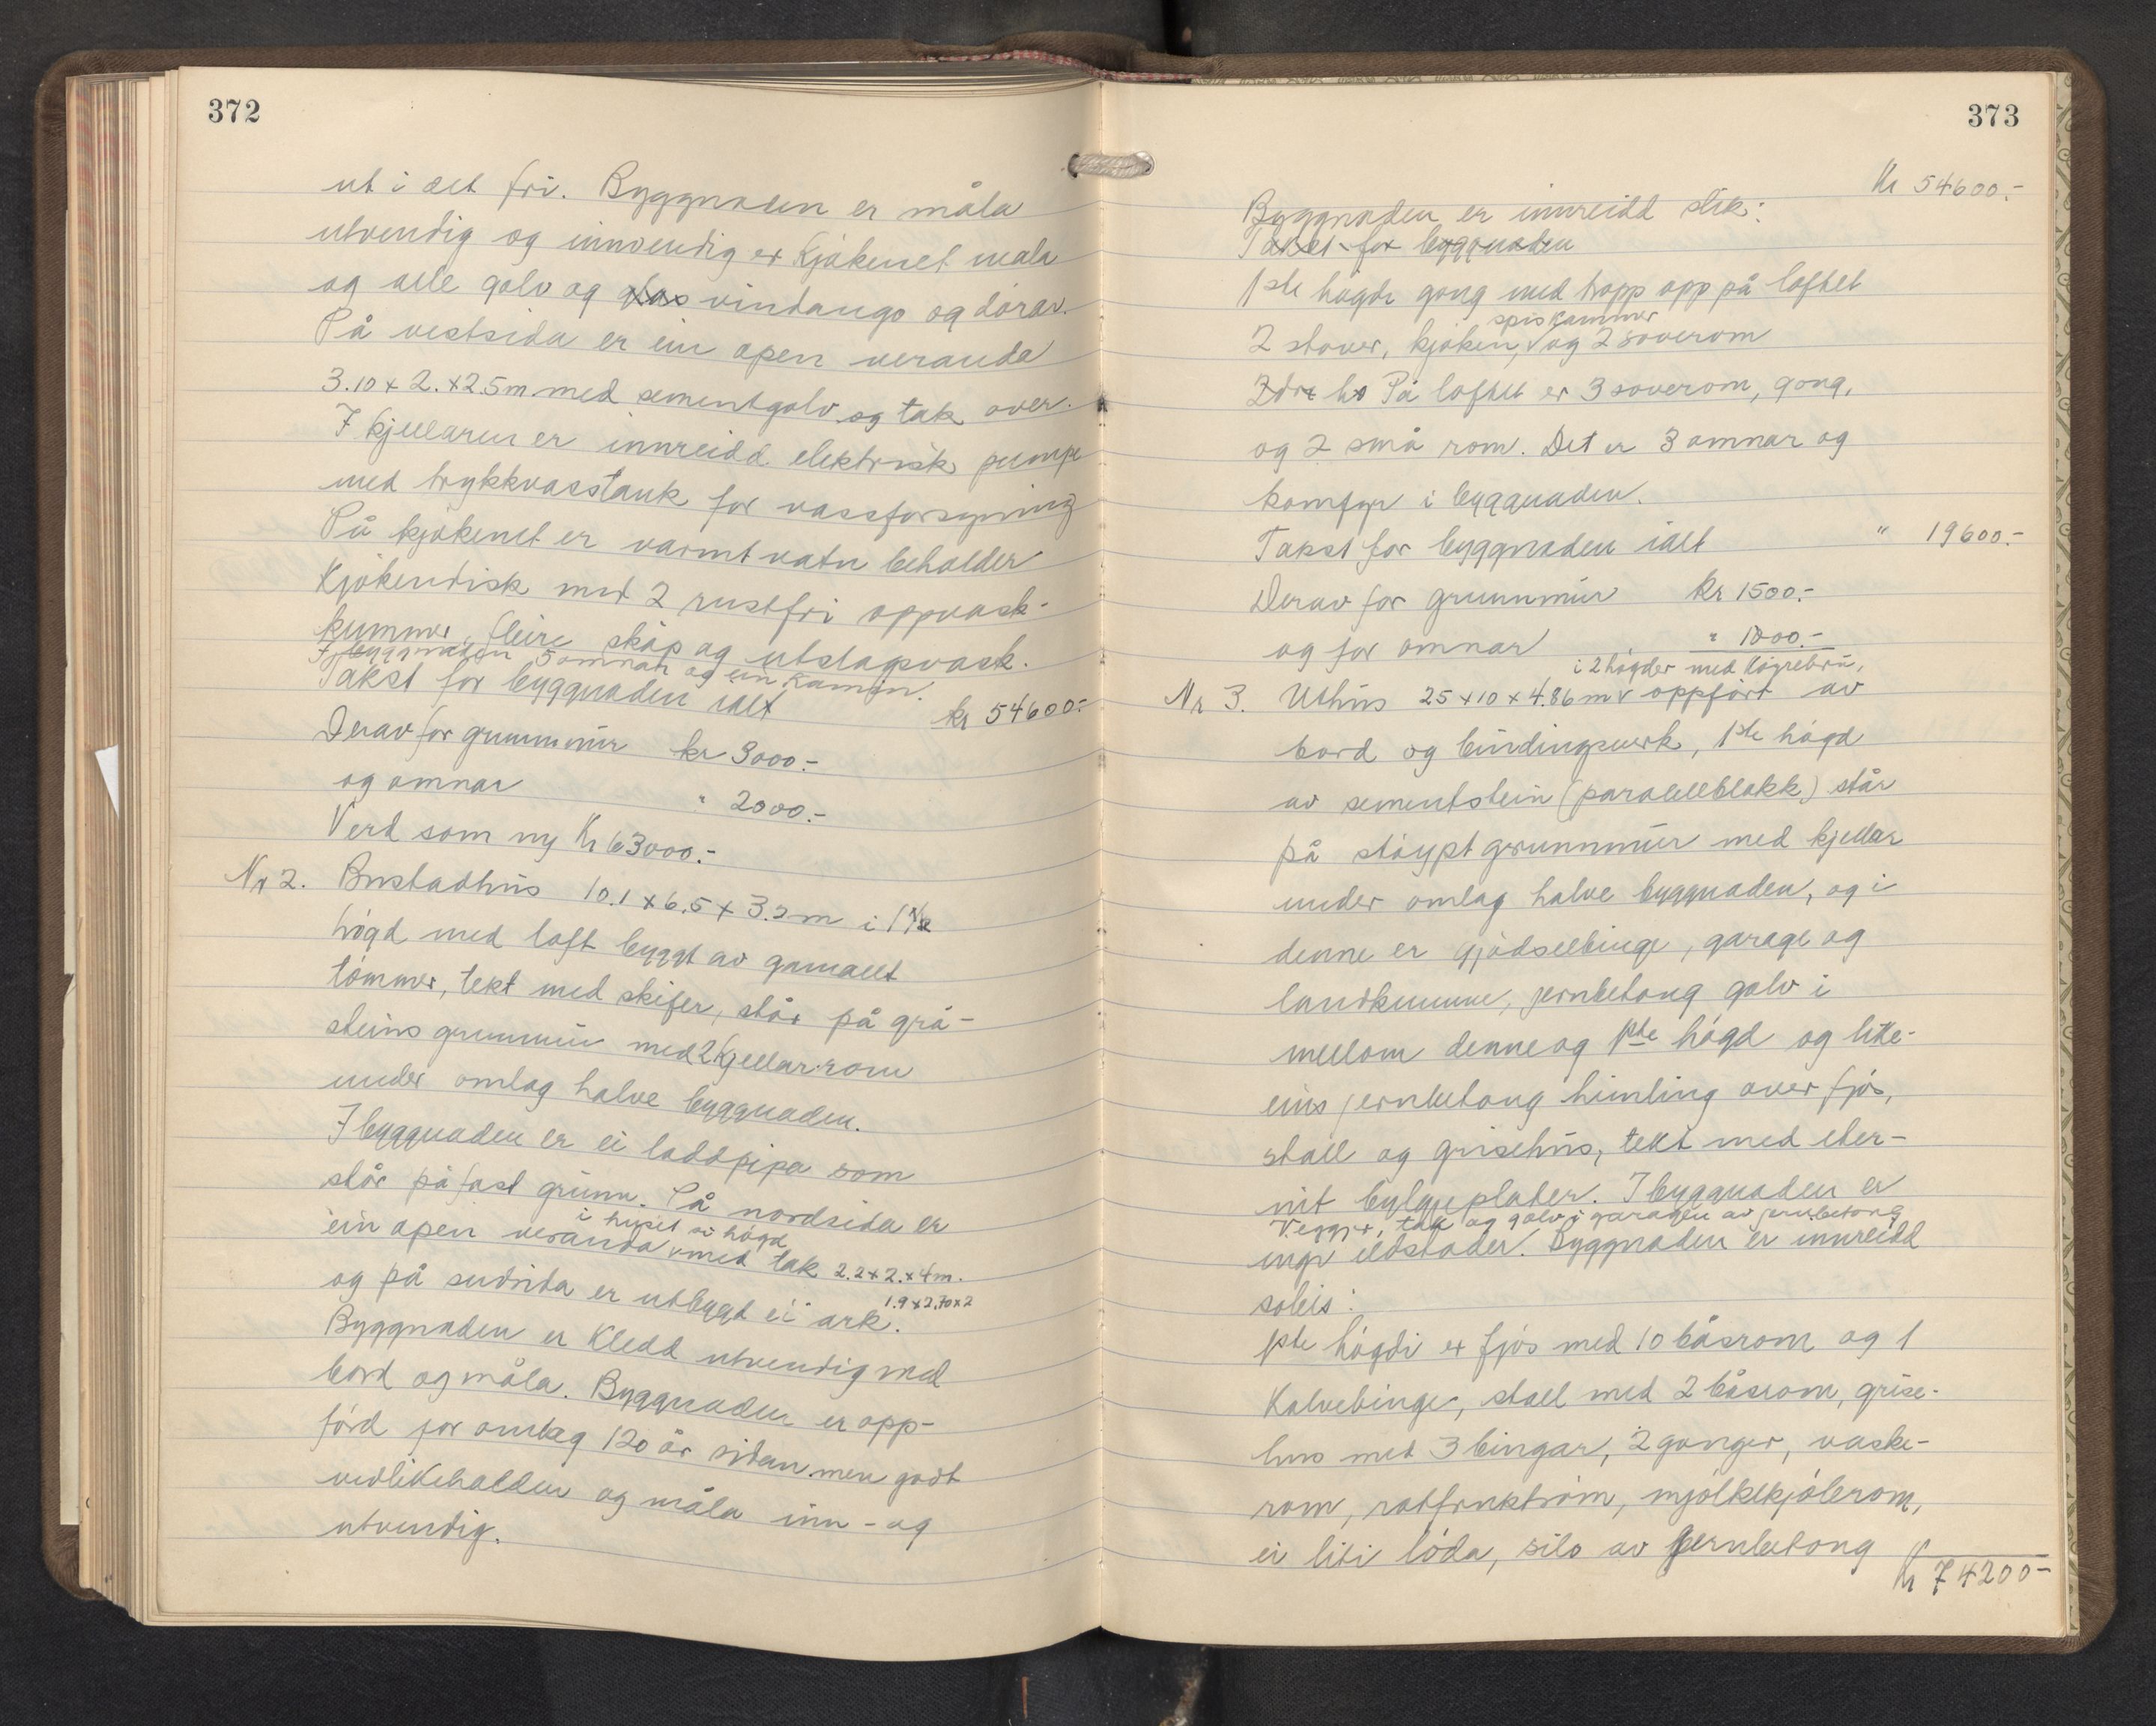 372
ut i det fri. Byggnaden er måla
utvendig og innvendig er Kjøkenet mala
og alle golv og glas vindaugo og dórar.
På vestsida er ein open veranda
3.10 x 2. x 2.5 m med sementgolv og tak over.
I kjellaren er innreidd elektrisk pumpe
med trykkvasstank for vassforsyning
På kjókenet er varmtvatn beholder
Kjókendisk med 2 rustfri oppvask-
kummer, fleire skåp og utslagsvask.
I byggnaden 5 omnar og ein kamin.
Takst for byggnaden ialt kr 54600.-
Derav for grunnmúr kr 3000.-
og omnar " 2000.-
Verd som ny Kr 63000.-
Nr 2. Bustadhús 10.1 x 6.5 x 3.5 m i 1 1/2
högd med loft byggt av gamalt
tömmer, tekt med skifer, står på grå-
steins grunnmúr med 2 Kjellar-rom
under omlag halve byggnaden.
I byggnaden er ei loddpipa som
står på fast grúnn. På nordsida er
i huset si högd
ein open veranda v med tak 2.2 x 2. x 4 m.
og på sudsida er utbyggt ei ark. 1.9 x 2.70 x 2
Byggnaden er Kledd utvendig med
bord og måla. Byggnaden er opp-
förd for omlag 120 år sidan men godt
vedlikehalden og måla inn- og
utvendig.
373
Kr 54600.-
Byggnaden er innreidd slik:
Takst for byggnaden
1ste högdi gong med tropp opp på loftet
spiskammer
2 stover, kjøken, v og 2 soverom
2dre hö På loftet er 3 soverom, gong,
og 2 små rom. Det er 3 omnar og
komfyr i byggnaden.
Takst for byggnaden ialt " 19600.-
Derav for grunnmúr kr 1500.-
og for omnar " 1000.-
i 2 högder med Köyrebru,
Nr 3. Uthús 25 x 10 x 4.86 m v oppfört av
bord og bindingsverk, 1ste högd
av sementstein (paralellblokk) står
på stöypt grunnmúr med kjellar
under omlag halve byggnaden, og i
denne er gjödselbinge, garage og
landkumme, jernbetong golv i
mellom denne og 1ste högd og like-
eins jernbetong himling over fjös,
stall og grisehús, tekt med eter-
nit bylgjeplater. I byggnaden er
Vegger, tak og golv i garagen av jernbetong
inge eldstader. Byggnaden er innreidd
soleis:
1ste högdi er fjós med 10 båsrom og 1
Kalvebinge, stall med 2 båsrom, grise-
hus med 3 bingar, 2 gonger, vaske-
rom, rotfruktróm, mjölkekjölerom,
ei liti löda, silo av jernbetong
Kr 74200-